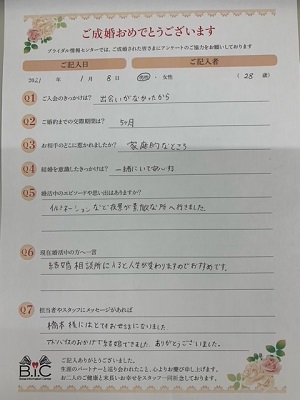 ご成婚おめでとうございます
ブライダル情報センターでは、ご成婚された皆さまにアンケートのご協力をお願いしております
ご記入日 ご記入者
2021年 1月 8日 男性・女性 (28歳)
Q1 ご入会のきっかけは? 出会いがなかったから
Q2 ご婚約までの交際期間は? 5ヶ月
Q3 お相手のどこに惹かれましたか? 家庭的なところ
Q4 結婚を意識したきっかけは? 一緒にいて
Q5 婚活中のエピソードや思い出はありますか?
イルミネーションなどで夜景が素敵な所へ行きました。
Q6 現在婚活中の方へ一言
結婚相談所に入ると人生が変わりますのでおすすめです。
Q7 担当者やスタッフにメッセージがあれば
橋本様にはとてもお世話になりました
アドバイスのおかげで結婚できました。ありがとうございました。
B.I.C
ご記入ありがとうございました。
生涯のパートナーと巡り合われたこと、心よりお慶び申し上げます。
お二人のご健康と末長いお幸せをスタッフ一同祈念しております。